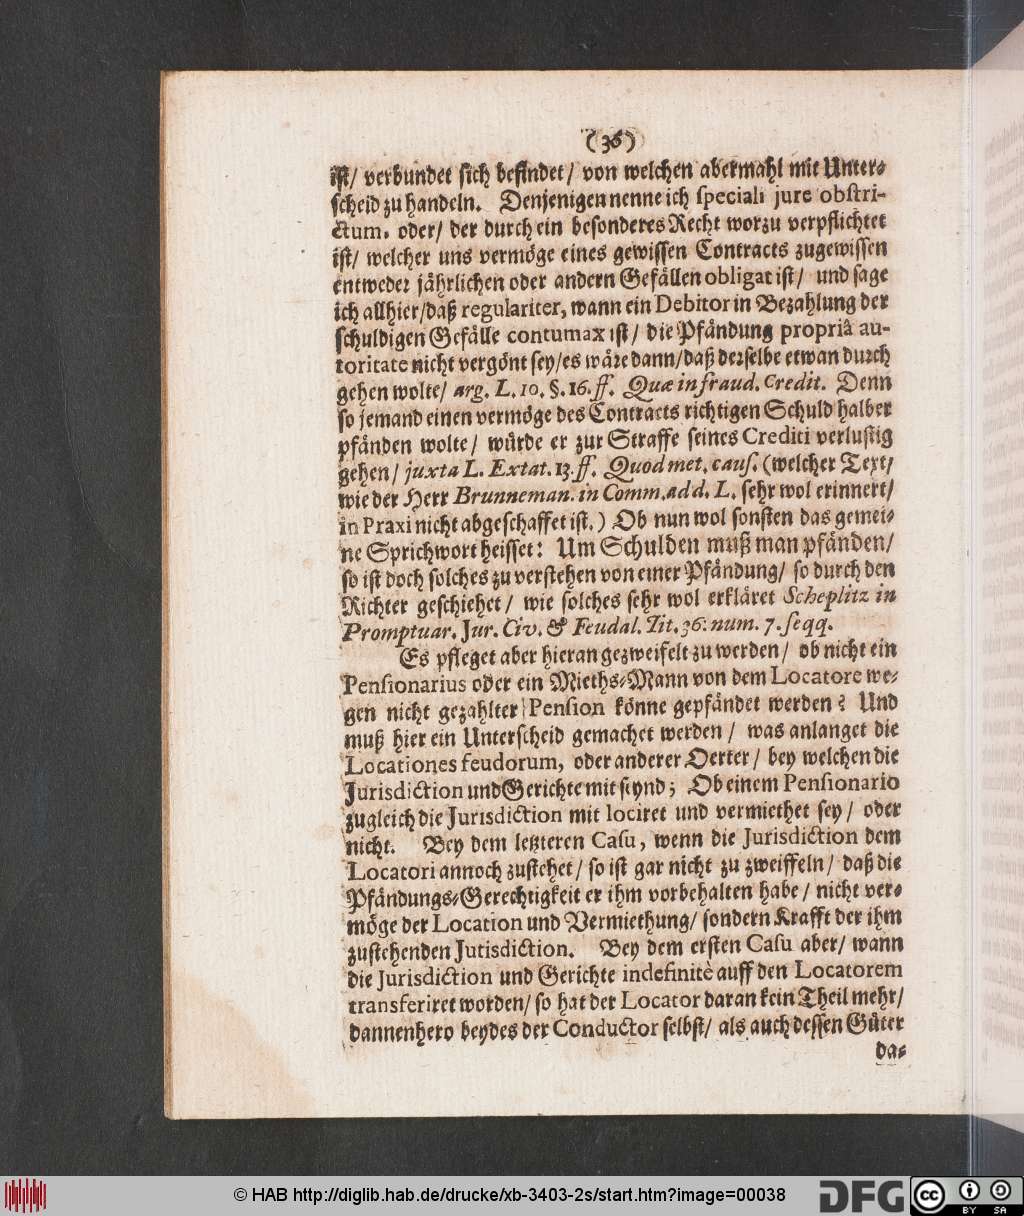 (36)
ist/ verbundet sich befindet/ von welchen abermahl mit Unter⸗
scheid zu handeln. Denjenigen nenne ich speciali jure obstri-
ctum. oder/ der durch ein besonderes Recht worzu verpflichtet
ist/ welcher uns vermöge eines gewissen Contracts zugewissen
entweder jährlichen oder andern Gefällen obligat ist/ und sage
ich allhier/daß regulariter, wann ein Debitor in Bezahlung der
schuldigen Gefälle contumax ist/ die Pfändung propriâ au-
toritate nicht vergönt sey/es wäre dann/daß derselbe etwan durch
gehen wolte/ arg. L. 10. §. 16. ff. Quæ in fraud. Credit. Denn
so jemand einen vermöge des Contracts richtigen Schuld halber
pfänden wolte/ würde er zur Straffe seines Crediti verlustig
gehen/ juxta L. Extat. 13. ff. Quod met. caus. (welcher Text/
wie der Herr Brunneman. in Comm. ad d. L. sehr wol erinnert/
in Praxi nicht abgeschaffet ist.) Ob nun wol sonsten das gemei⸗
ne Sprichwort heisset: Um Schulden muß man pfänden/
so ist doch solches zu verstehen von einer Pfändung/ so durch den
Richter geschiehet/ wie solches sehr wol erkläret Scheplitz in
Promptuar. Jur. Civ. & Feudal. Tit. 36. num. 7. seqq.
Es pfleget aber hieran gezweifelt zu werden/ ob nicht ein
Pensionarius oder ein Mieths⸗Mann von dem Locatore we⸗
gen nicht gezahlter Pension könne gepfändet werden? Und
muß hier ein Unterscheid gemachet werden/ was anlanget die
Locationes feudorum, oder anderer Oerter/ bey welchen die
Jurisdiction und Gerichte mit seynd; Ob einem Pensionario
zugleich die Jurisdiction mit lociret und vermiethet sey/ oder
nicht. Bey dem letzteren Casu, wenn die Jurisdiction dem
Locatori annoch zustehet/ so ist gar nicht zu zweiffeln/ daß die
Pfändungs⸗Gerechtigkeit er ihm vorbehalten habe/ nicht ver⸗
möge der Location und Vermiethung/ sondern Krafft der ihm
zustehenden Jutisdiction. Bey dem ersten Casu aber/ wann
die Jurisdiction und Gerichte indefinitè auff den Locatorem
transferiret worden/ so hat der Locator daran kein Theil mehr/
dannenhero beydes der Conductor selbst/ als auch dessen Güter
da⸗
© HAB http://diglib.hab.de/drucke/xb-3403-2s/start.htm?image=00038
DFG
cc
BY SA